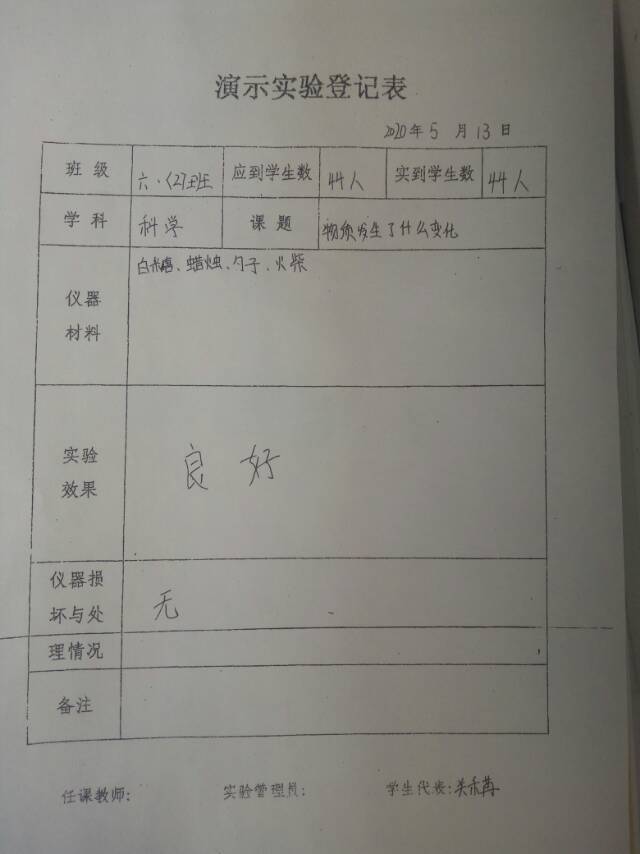 演示实验登记表
2020年5月13日
班级 六.(2)班 应到学生数 44人 实到学生数 44人
学科 科学 课题 物质发生了什么变化
仪器材料 白糖、蜡烛、勺子、火柴
实验效果 良好
仪器损坏与处理情况 无
备注
任课教师: 实验管理员: 学生代表: